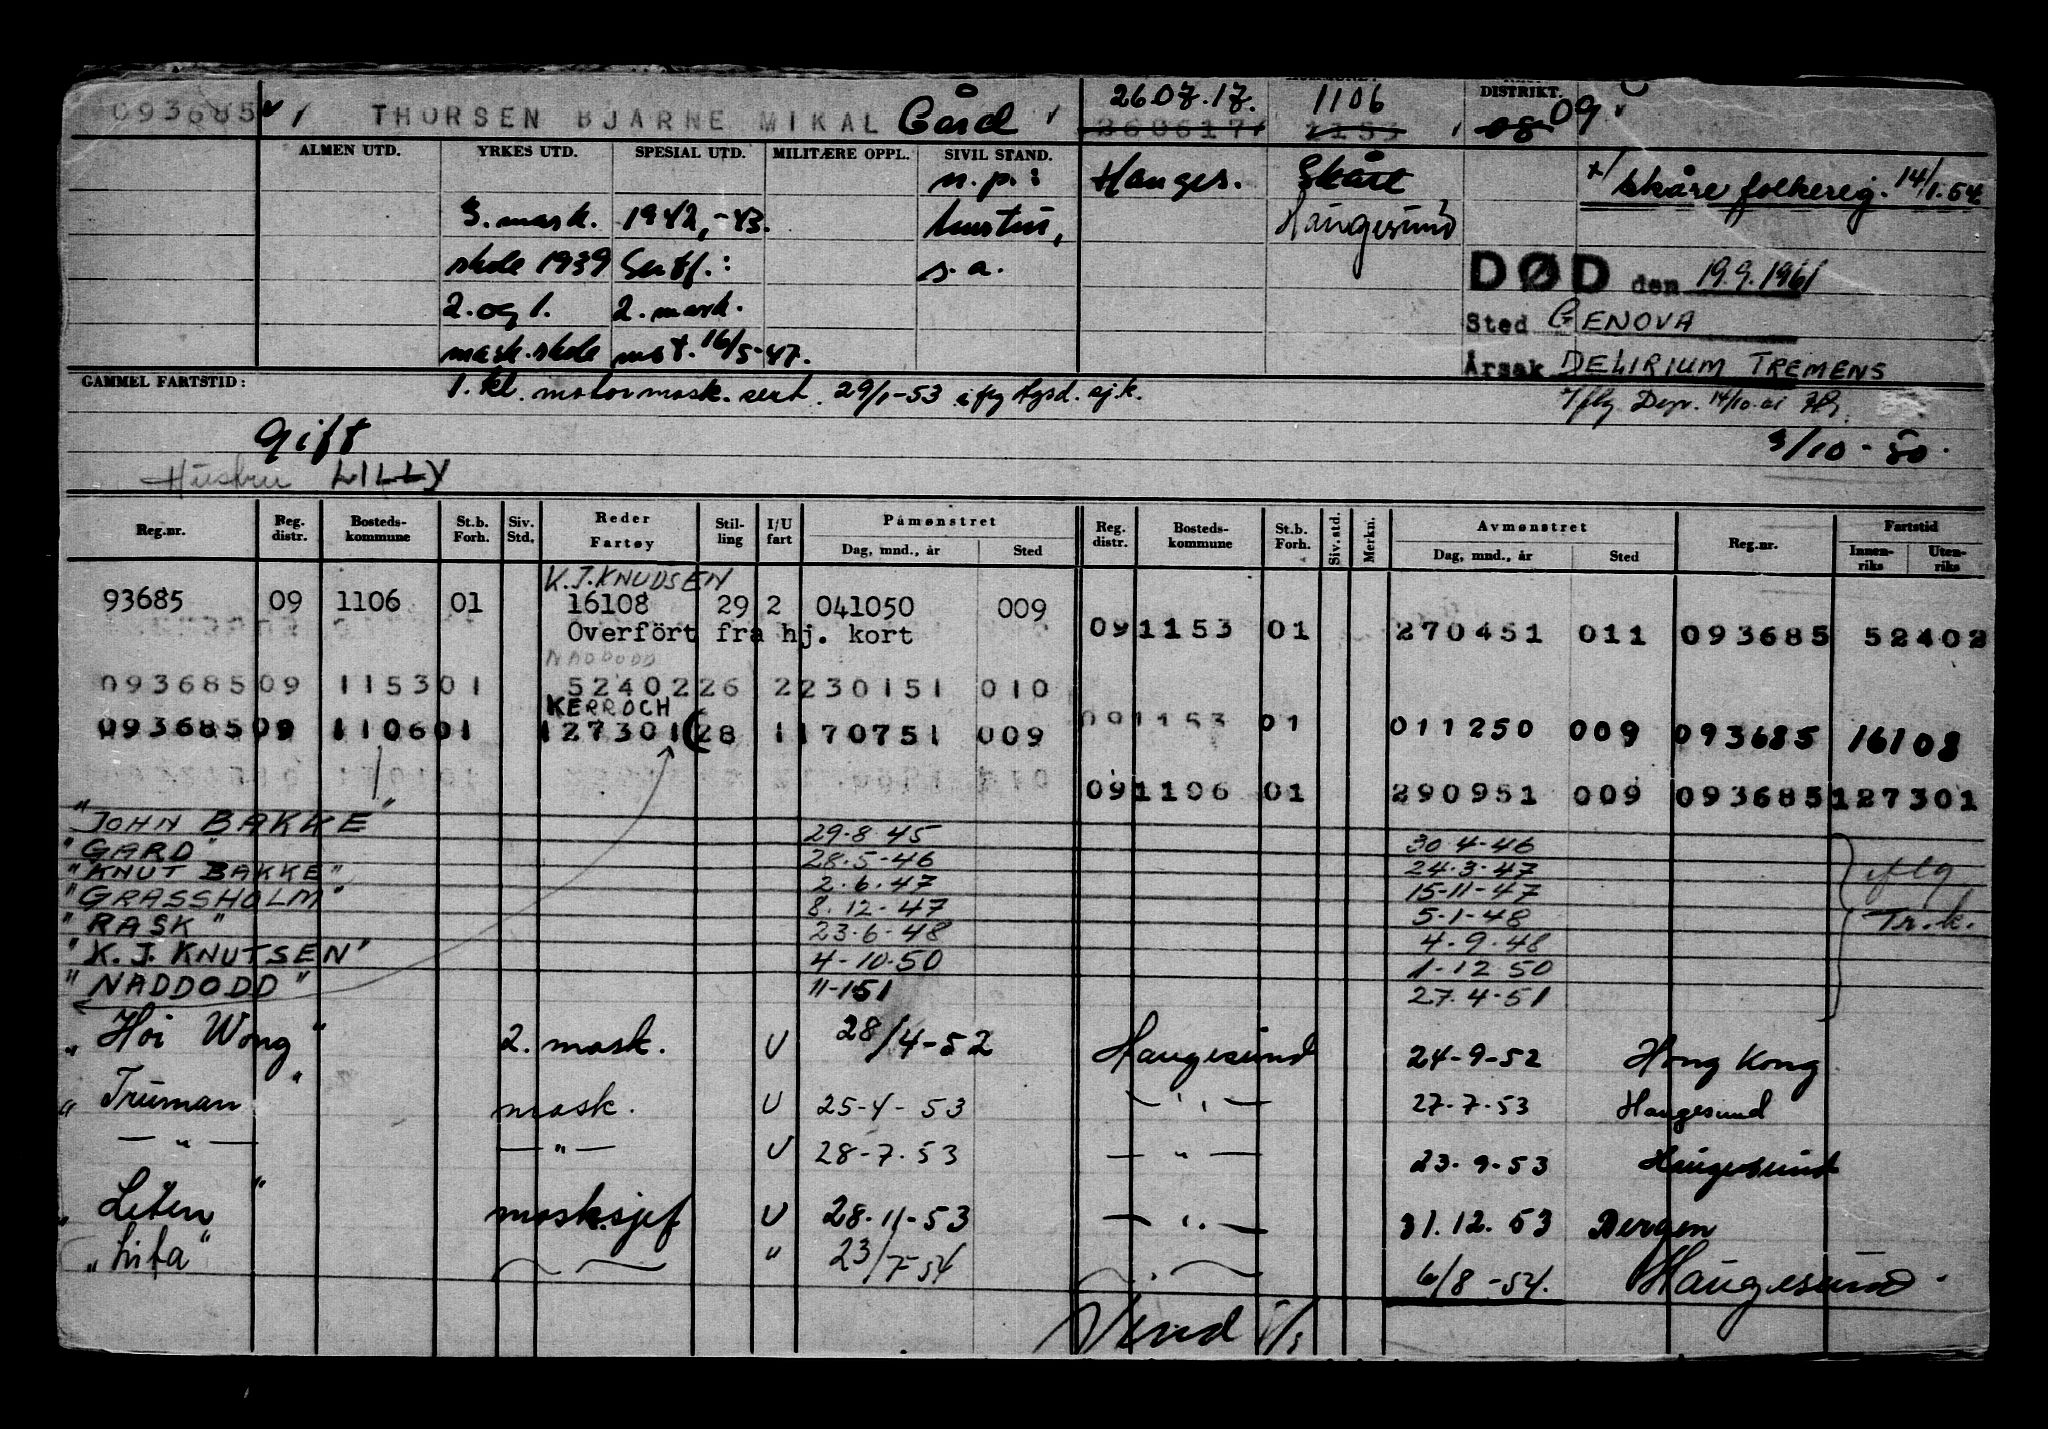 093685 THORSEN BJARNE MIKAL Gård 260717. 1106 DISTRIKT. 09
260617 1153 08
ALMEN UTD. YRKES UTD. SPESIAL UTD. MILITÆRE OPPL. SIVIL STAND.
n.p.: Hauges. Skåre x/ Skåre folkereg. 14/1.54
3. mask. 1942,-43. hustru, Haugesund
skole 1939 Sertf.: s.a. DØD den 19.9.1961
2. og 1. 2. mask. Sted GENOVA
mask.skole mot. 16/5-47. Årsak DELIRIUM TREMENS
GAMMEL FARTSTID: 1. kl. motormask. sert. 29/1-53 ifg Hgsd. sj.k.
gift 3/10-50.
Hustru LILLY
Reg.nr. Reg. distr. Bosteds-kommune St.b. Forh. Siv. Std. Reder Fartøy Stil-ling I/U fart Påmønstret Dag, mnd., år Sted Reg. distr. Bosteds-kommune St.b. Forh. Siv. std. Merkn. Avmønstret Dag, mnd., år Sted Reg.nr. Fartstid Innen-riks Uten-riks
K.J.KNUDSEN
93685 09 1106 01 16108 29 2 041050 009
Overfört fra hj. kort 09 1153 01 270451 011 093685 52402
NADDODD
093685 09 1153 01 52402 26 2 230151 010
KERROCH
093685 09 1106 01 127301 28 1 170751 009 09 1153 01 011250 009 093685 16108
09 1106 01 290951 009 093685 127301
"JOHN BAKKE" 29.8 45 30 4-46
"GARD" 28.5-46 24.3.47
"KNUT BAKKE" 2.6.47 15-11-47 iflg
"GRASSHOLM" 8.12.47 5.1-48
"RASK" 23.6.48 4.9.48 Tr.k.
"K.J. KNUTSEN" 4-10.50 1-12 50
"NADDODD" 11-1 51 27.4-51
"Hoi Wong" 2. mask. U 28/4-52 Haugesund 24-9-52 Hong Kong
"Truman" mask. U 25-4-53 — " — 27.7.53 Haugesund
— " — — " — U 28-7.53 — " — 23.9.53 Haugesund
"Leten" masksjef U 28.11-53 — " — 31.12.53 Bergen
"Lita" " 23/7-54 6/8-54. Haugesund.
Vend